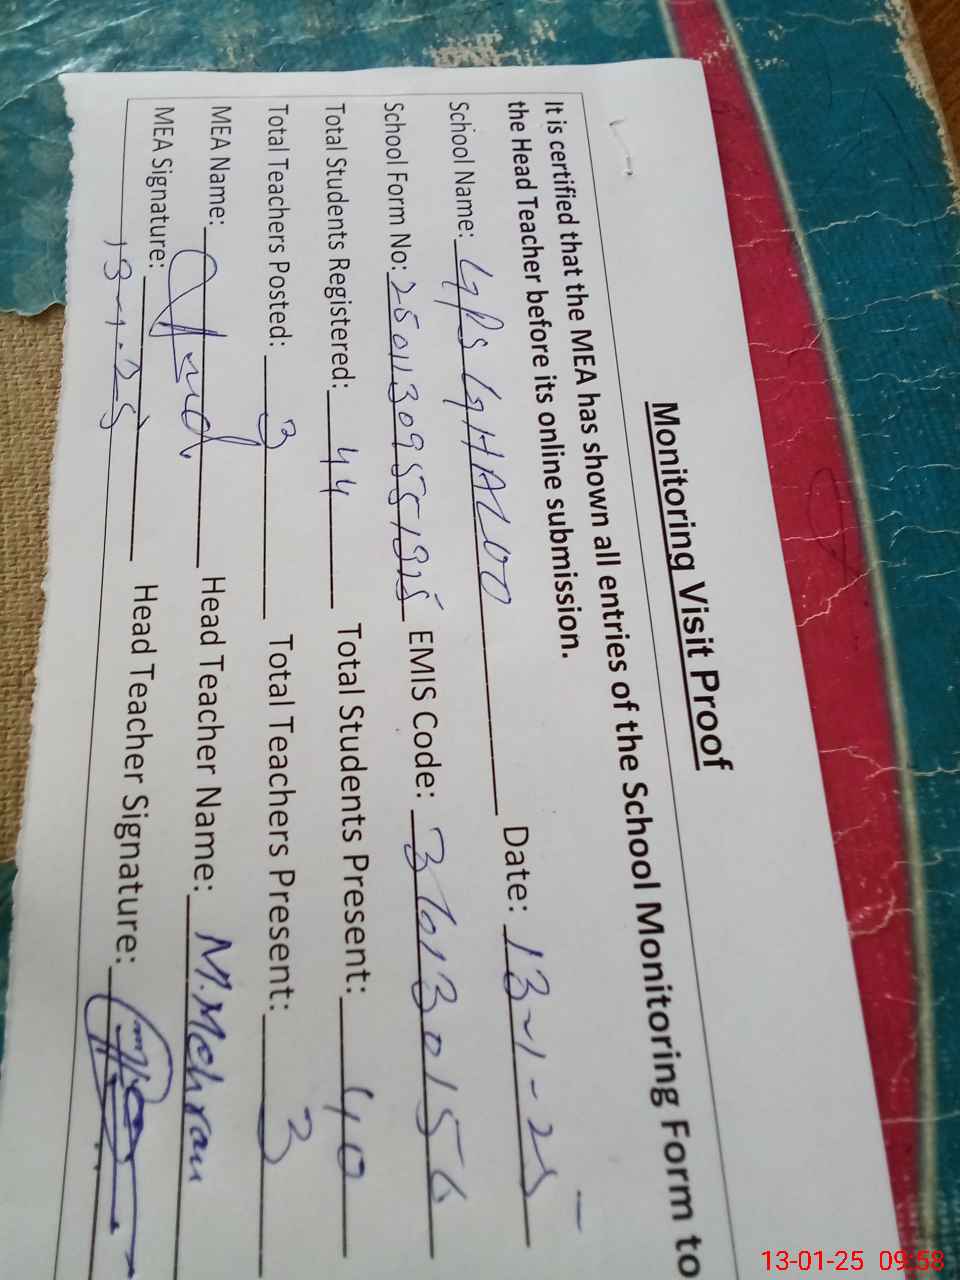 Monitoring Visit Proof
It is certified that the MEA has shown all entries of the School Monitoring Form to
the Head Teacher before its online submission.
School Name: GPS GHALOO Date: 13-1-25
School Form No: EMIS Code: 36130156
Total Students Registered: 44 Total Students Present: 40
Total Teachers Posted: 3 Total Teachers Present: 3
MEA Name: Head Teacher Name: M.Mehran
MEA Signature: Head Teacher Signature:
13-1-25
13-01-25 09:58